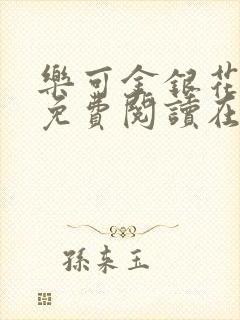 樂可金銀花
免費閱讀在
孫來玉